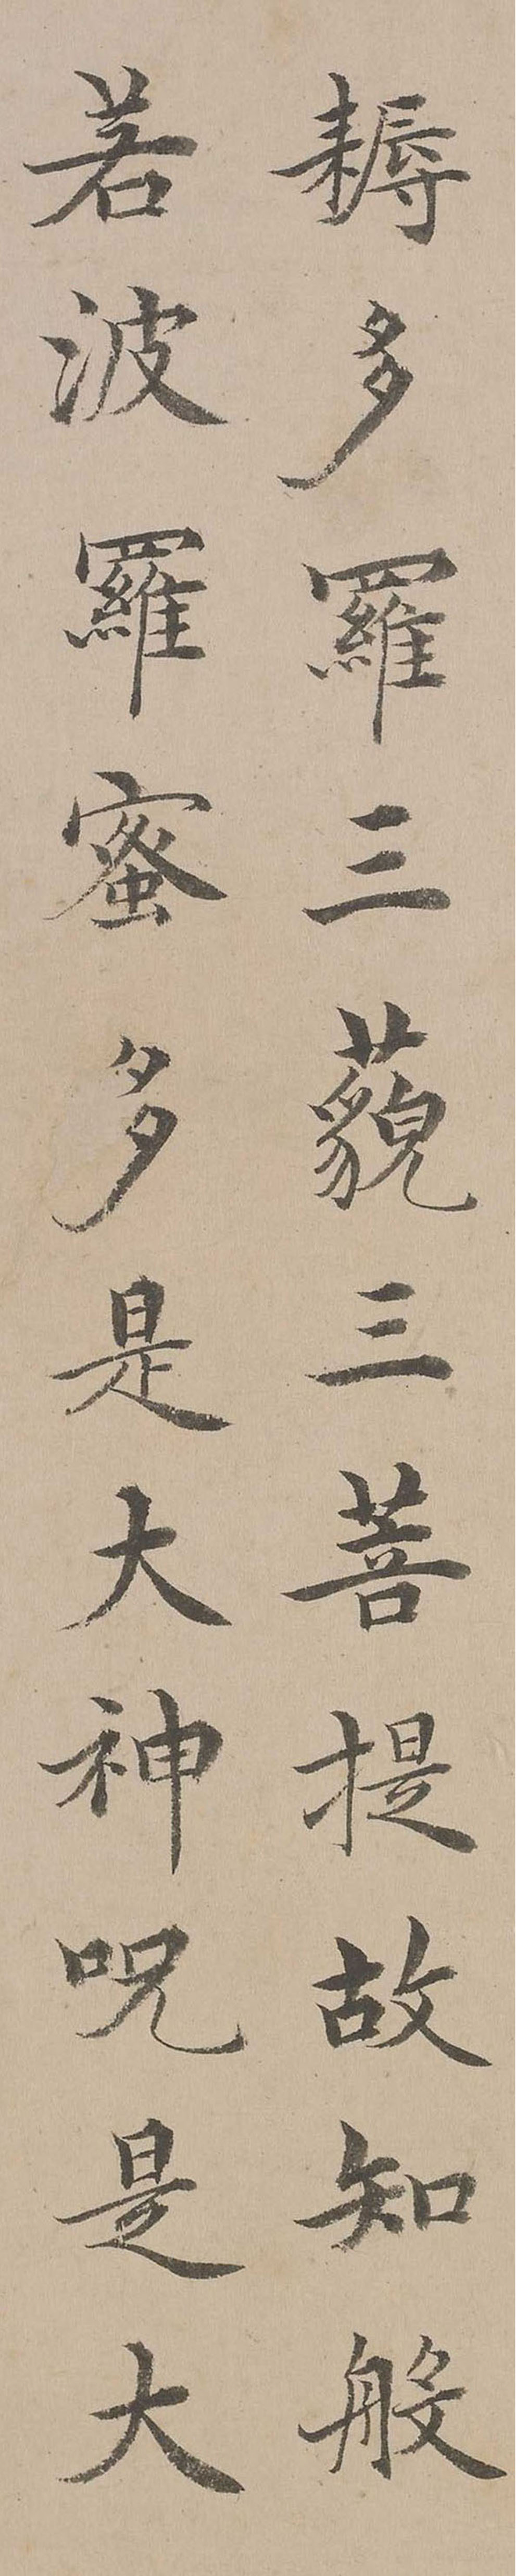 耨多羅三藐三菩提故知般
若波羅蜜多是大神呪是大